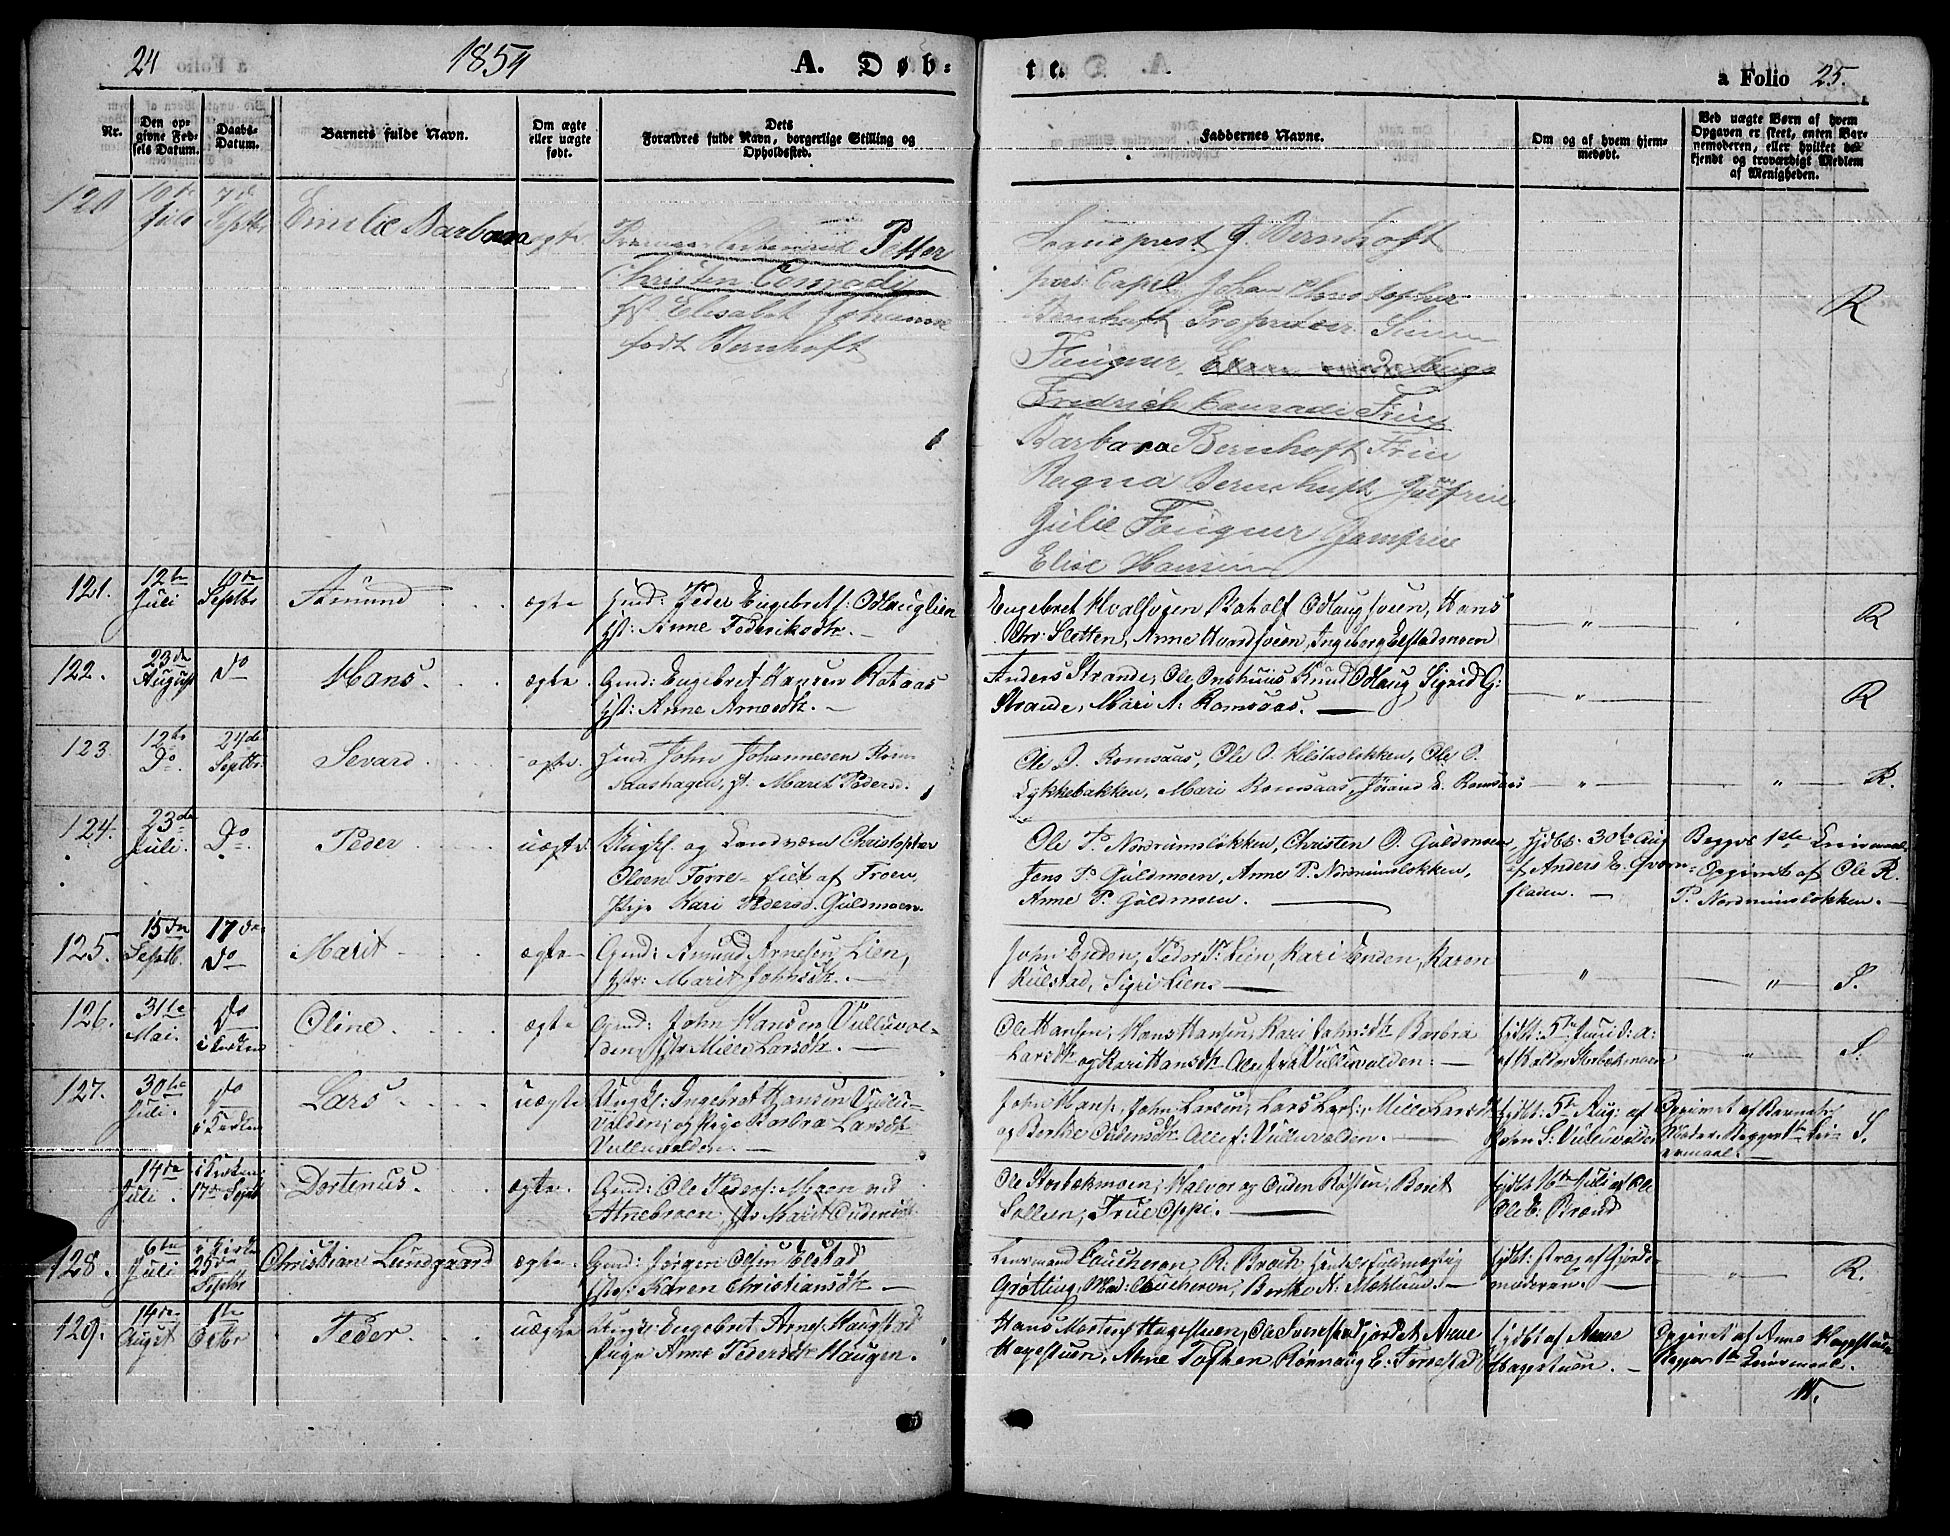 24 1854 A. Døb-
te. a Folio 25.
Nr.
Den op-
givne Fød-
sels Datum.
Daabs-
Datum.
Barnets fulde Navn.
Om ægte
eller uægte
født.
Dets
Forældres fulde Navn, borgerlige Stilling og
Opholdssted.
Faddernes Navne.
Om og af hvem hjem-
medøbt.
Ved uægte Børn af hvem
Opgaven er skeet, enten Bar-
nemoderen, eller hvilket be-
kjendt og troværdigt Medlem
af Menigheden.
120
10de
Juli
7de
Septbr
Emilie Barbara
ægte
Petter
Christen Conradi
Hst Elisabet Johanne
født Bernhoft
Sognepræst J. Bernhoft
pers: Capel. Johan Christopher
Bernhoft Proprietær Simen
Faugner,
Fredrich Conradi Frue
Barbara Bernhoft Frue
Ragna Bernhoft Jomfrue
Julie Faugner Jomfrue
Elise Hansen
R
121.
12te
Juli
10de
Septbr
Amund
ægte
Gmd: Peder Engebrets: Odlauglien
Hst: Anne Federiksdtr.
Engebret Hvalsogen Baholf Odlaugsveen, Hans
Chr: Sletten, Anne Hvardsveen, Ingeborg Elstadmoen
"
R
122.
23de
August
do
Hans
ægte
Gmd: Engebret Hansen Rolaas
Hst: Anne Arnesdtr.
Anders Strande, Ole Onshuus Knud Odlaug, Sigrid G:
Strande, Mari A: Romsaas.
"
R
123.
12te
Do.
24de
Septbr.
Sevard
ægte.
Hmd John Johannesen Rom-
saashagen, H. Marit Pedersd.
Ole D. Romsaas, Ole O. Kilstadløkken, Ole O.
Lykkebakken, Mari Romsaas, Jørand E. Romsaas
"
"
R.
124.
23de
Juli.
Do.
Peder
uægte.
Ungkl. og Landværn Christopher
Olsen Forre- fiet af Froen,
Pige Kari Pedersd. Guldmoen.
Ole P. Nordrumsløkken, Christen O. Guldmoen,
Jens P. Guldmoen, Anne P. Nordrumsløkken,
Anne P. Guldmoen.
Hjdbt. 30te Aug
af Anders E. Qværn-
fladen.
Begges 1ste Leiermaal
Opgivet af Ole R.
P. Nordrumsløkken.
125.
15de
Septb.
17de
do
Marit
ægte
Gmd: Amund Arnesen Lien,
Hstr: Marit Johnsdtr.
John Enden, Peder P: Lien, Kari Enden, Karen
Kulstad, Sigri Lien.
"
"
S.
126.
31te
Mai.
do
i Kirken
Oline
ægte
Gmd: John Hansen Vulluvol-
den, Hstr Mille Larsdtr.
Ole Hansen, Hans Hansen, Kari Johnsdtr Barbra
Larsdtr og Kari Hansdtr Alle fra Vulluvolden.
Hjdbt: 5te Juni d: a:
af Halvor Storbækmoen
"
S.
127.
30te
Juli.
do
i Kirken
Lars
uægte
Ungkl: Ingebret Hansen Vullu-
volden, og Pige Barbra Larsdtr
Vulluvolden.
John Hans:, John Larsen, Lars Lars:, Mille Larsdtr
og Berthe Oudensdtr Alle f: Vulluvolden.
Hjdbt: 5te Aug: af
John S: Vulluvolden
Opgivet af Barnets
Moder. Begges 1te Lei-
ermaal.
S.
14de
Juli.
i Kirken
17de Septb
Dortenus
ægte.
Gmd: Ole Peders: Moen ved
Atnebroen, Hstr Marit Oudensdtr
Ole Storbækmoen, Halvor og Ouden Røsten, Beret
Sollien, Frue Oppe.
Hjdbt 16de Juli af Ole
Ole E. Brænd
128.
6te
Juli
i Kirken
25de
Septbr
Christian Lundgaard
ægte
Gmd: Jørgen Olsen Elstad
Hstr: Karen Christiansdtr
Lensmand Caucheron, R. Broch, Handelsfuldmægtig
Grøtting, Mad: Caucheron, Berthe N: Mæhlum.
Hjdbt: strax af Gjords-
moderen.
"
R.
129.
14de
August
1ste
Octbr
Peder
uægte
Ungkl: Engebret Arnes: Haugstad
Pige Anne Pedersdtr Haugen.
Hans Mortens: Hagestuen, Ole Svenstadjordet, Arne
Hagestuen, Anne Toften, Rønnaug E: Forrestad
Hjdbt af Arne
Hagestuen.
Opgivet af Arne Hagestuen
Begges 1te Leiermaal.